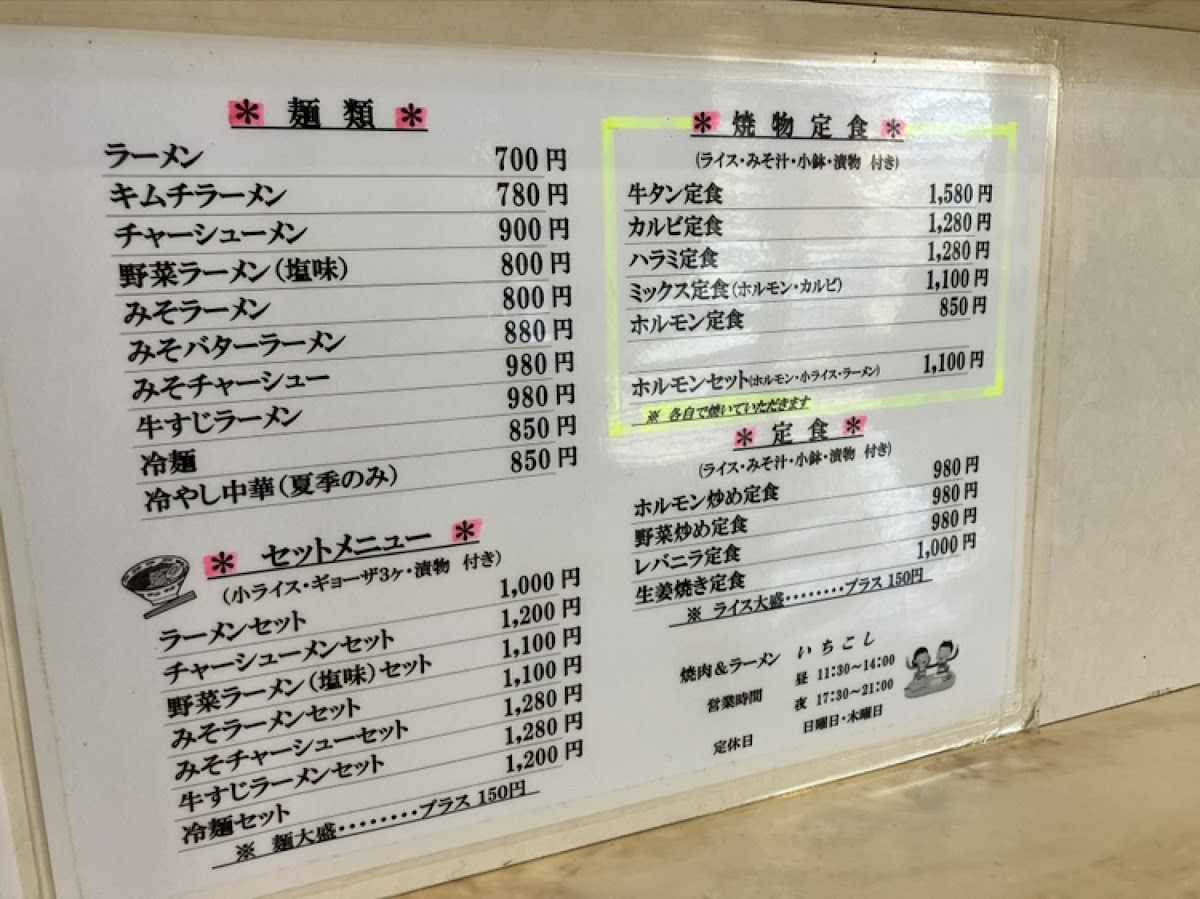 ＊ 麺 類 ＊
ラーメン 700円
キムチラーメン 780円
チャーシューメン 900円
野菜ラーメン（塩味） 800円
みそラーメン 800円
みそバターラーメン 880円
みそチャーシュー 980円
牛すじラーメン 980円
冷麺 850円
冷やし中華（夏季のみ） 850円
＊ セットメニュー ＊
（小ライス・ギョーザ3ヶ・漬物 付き）
ラーメンセット 1,000円
チャーシューメンセット 1,200円
野菜ラーメン（塩味）セット 1,100円
みそラーメンセット 1,100円
みそチャーシューセット 1,280円
牛すじラーメンセット 1,280円
冷麺セット 1,200円
※ 麺大盛・・・・・・・・プラス 150円
＊ 焼 物 定 食 ＊
（ライス・みそ汁・小鉢・漬物 付き）
牛タン定食 1,580円
カルビ定食 1,280円
ハラミ定食 1,280円
ミックス定食（ホルモン・カルビ） 1,100円
ホルモン定食 850円
ホルモンセット（ホルモン・小ライス・ラーメン） 1,100円
※ 各自で焼いていただきます
＊ 定 食 ＊
（ライス・みそ汁・小鉢・漬物 付き）
ホルモン炒め定食 980円
野菜炒め定食 980円
レバニラ定食 980円
生姜焼き定食 1,000円
※ ライス大盛・・・・・・・・プラス 150円
焼肉＆ラーメン いちこし
営業時間 昼 11:30～14:00
夜 17:30～21:00
定休日 日曜日・木曜日